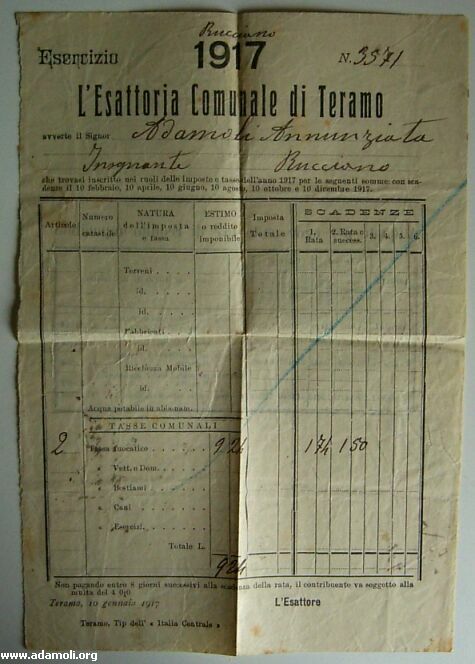 Rucciano
Esercizio 1917 N. 3571
L'Esattoria Comunale di Teramo
avverte il Signor Adamoli Annunziata
Insegnante Rucciano
che trovasi inscritto nei ruoli delle imposte e tasse dell'anno 1917 per le seguenti somme con sca-
denze il 10 febbraio, 10 aprile, 10 giugno, 10 agosto, 10 ottobre e 10 dicembre 1917.
Articolo Numero catastale NATURA dell'imposta e tassa ESTIMO o reddito imponibile Imposta Totale SCADENZE
1. Rata 2. Rata e success. 3. 4. 5. 6.
Terreni . . . .
id. . . . .
id. . . . .
Fabbricati . . . .
id. . . . .
Ricchezza Mobile
id. . . . .
Acqua potabile in abbonam.
TASSE COMUNALI
2 Tassa fuocatico . . . . 9 24 1 74 1 50
« Vett. e Dom. . . .
« Bestiami . . . .
« Cani . . . .
« Esercizi. . . .
Totale L. 9 24
Non pagando entro 8 giorni successivi alla scadenza della rata, il contribuente va soggetto alla
multa del 4 0|0
Teramo, 10 gennaio 1917 L'Esattore
Teramo, Tip dell' « Italia Centrale »
www.adamoli.org